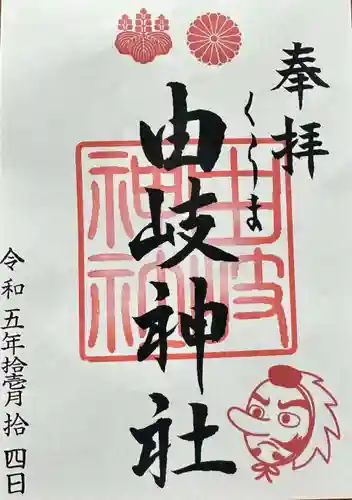 奉拝
くらま
由岐神社
由岐神社
令和五年拾壱月拾四日